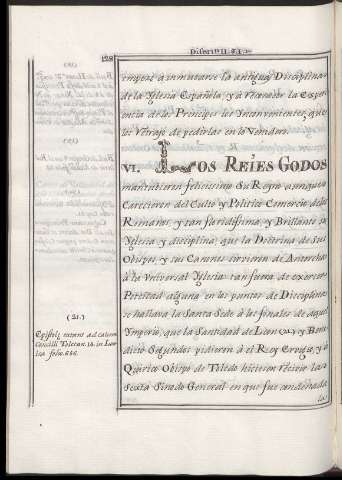 Disert.n II. §.I.
empezó a inmutarse la antigua Disciplina
de la Yglesia Española, y a vicar la Expe
riencia de los Principes los Ynconvenientes, que
les retrajo de pedirlas en lo Venidero.
VI. LOS REIES GODOS
mantubieron felicissimo Su Reyno aunque
Carecieron del Culto, y Politico Comercio de los
Romanos, y tan floridissima, y Brillante su
Yglesia y disciplina, que la Doctrina de Sus
Obispos, y sus Canones sirvieron de Antorcha
à la Universal Yglesia: tan fuera de exercer
Potestad alguna en los puntos de Disciplina
se hallava la Santa Sede à los finales de aquel
Ymperio, que la Santidad de Leon (21) y Bene
dicto Segundos pidieron à el Rey Ervigio, y à
Quirico Obispo de Toledo hiciesen recivir la
Sexta Sinodo General en que fue condenada
la
(21.)
Epistolę extant ad calcem
Concilii Toletan. 14. in Loa
isa folio 686.